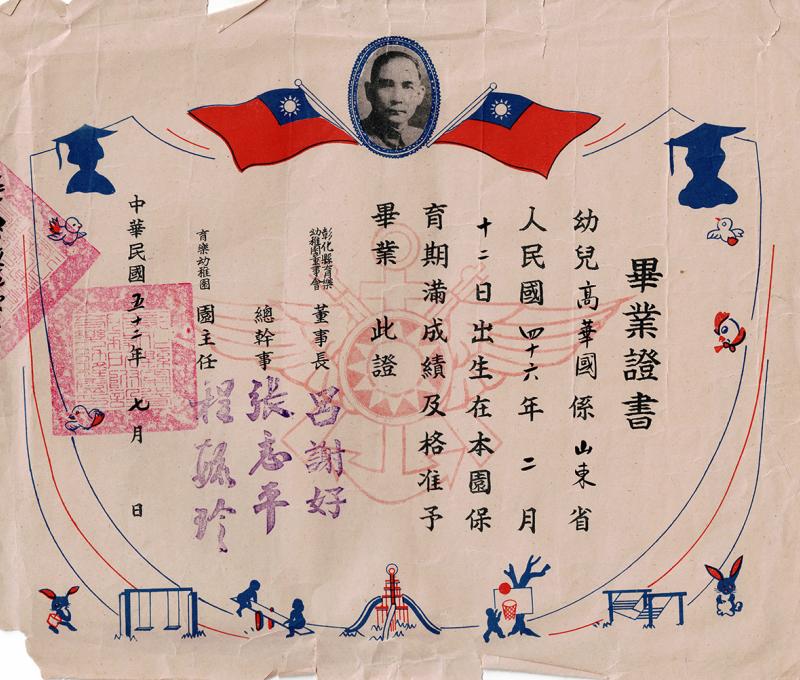 畢業證書
幼兒高華國係山東省
人民國四十六年二月
十二日出生在本園保
育期滿成績及格准予
畢業此證
彰化縣育樂
幼稚園董事會
董事長呂謝好
總幹事張志平
育樂幼稚園
園主任程毓玲
中華民國五十二年七月 日